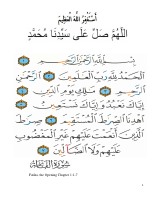 أَسْتَغْفِرُ اللهَ الْعَظِيْمَ
اللَّهُمَّ صَلِّ عَلَى سَيِّدِنَا مُحَمَّدٍ
بِسْمِ اللَّهِ الرَّحْمَنِ الرَّحِيمِ
الْحَمْدُ لِلَّهِ رَبِّ الْعَالَمِينَ الرَّحْمَنِ
الرَّحِيمِ مَالِكِ يَوْمِ الدِّينِ
إِيَّاكَ نَعْبُدُ وَإِيَّاكَ نَسْتَعِينُ
اهْدِنَا الصِّرَاطَ الْمُسْتَقِيمَ صِرَاطَ
الَّذِينَ أَنْعَمْتَ عَلَيْهِمْ غَيْرِ الْمَغْضُوبِ
عَلَيْهِمْ وَلَا الضَّالِّينَ
سُورَةُ الْفَاتِحَة
Fatiha the Opening Chapter 1:1-7
1